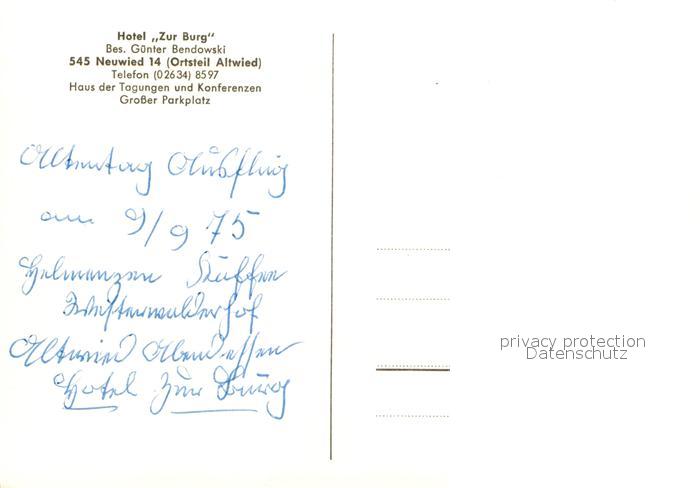 Hotel „Zur Burg“
Bes. Günter Bendowski
545 Neuwied 14 (Ortsteil Altwied)
Telefon (02634) 8597
Haus der Tagungen und Konferenzen
Großer Parkplatz
Altentag Ausflug
am 9/9 75
Helmenzen Kaffee
Westerwälderhof
Altwied Abendessen
Hotel Zur Burg
privacy protection
Datenschutz